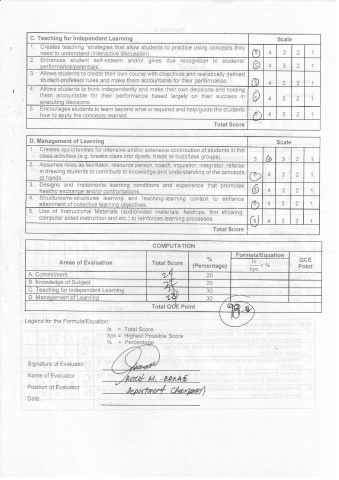 C. Teaching for Independent Learning Scale
1. Creates teaching strategies that allow students to practice using concepts they need to understand (interactive discussion). 5 4 3 2 1
2. Enhances student self-esteem and/or gives due recognition to students' performance/potentials. 5 4 3 2 1
3. Allows students to create their own course with objectives and realistically defined student-professor rules and make them accountable for their performance. 5 4 3 2 1
4. Allows students to think independently and make their own decisions and holding them accountable for their performance based largely on their success in executing decisions. 5 4 3 2 1
5. Encourages students to learn beyond what is required and help/guide the students how to apply the concepts learned 5 4 3 2 1
Total Score
D. Management of Learning Scale
1. Creates opportunities for intensive and/or extensive contribution of students in the class activities (e.g. breaks class into dyads, triads or buzz/task groups). 5 4 3 2 1
2. Assumes roles as facilitator, resource person, coach, inquisitor, integrator, referee in drawing students to contribute to knowledge and understanding of the concepts at hands. 5 4 3 2 1
3. Designs and implements learning conditions and experience that promotes healthy exchange and/or confrontations. 5 4 3 2 1
4. Structures/re-structures learning and teaching-learning context to enhance attainment of collective learning objectives. 5 4 3 2 1
5. Use of Instructional Materials (audio/video materials: fieldtrips, film showing, computer aided instruction and etc.) to reinforces learning processes. 5 4 3 2 1
Total Score
COMPUTATION
Areas of Evaluation Total Score % (Percentage) Formula/Equation ts/hps × % QCE Point
A. Commitment 24 30
B. Knowledge of Subject 20
C. Teaching for Independent Learning 30
D. Management of Learning 24 30
Total QCE Point
Legend for the Formula/Equation:
ts = Total Score
hps = Highest Possible Score
% = Percentage
Signature of Evaluator
Name of Evaluator
Position of Evaluator Department Chairman
Date